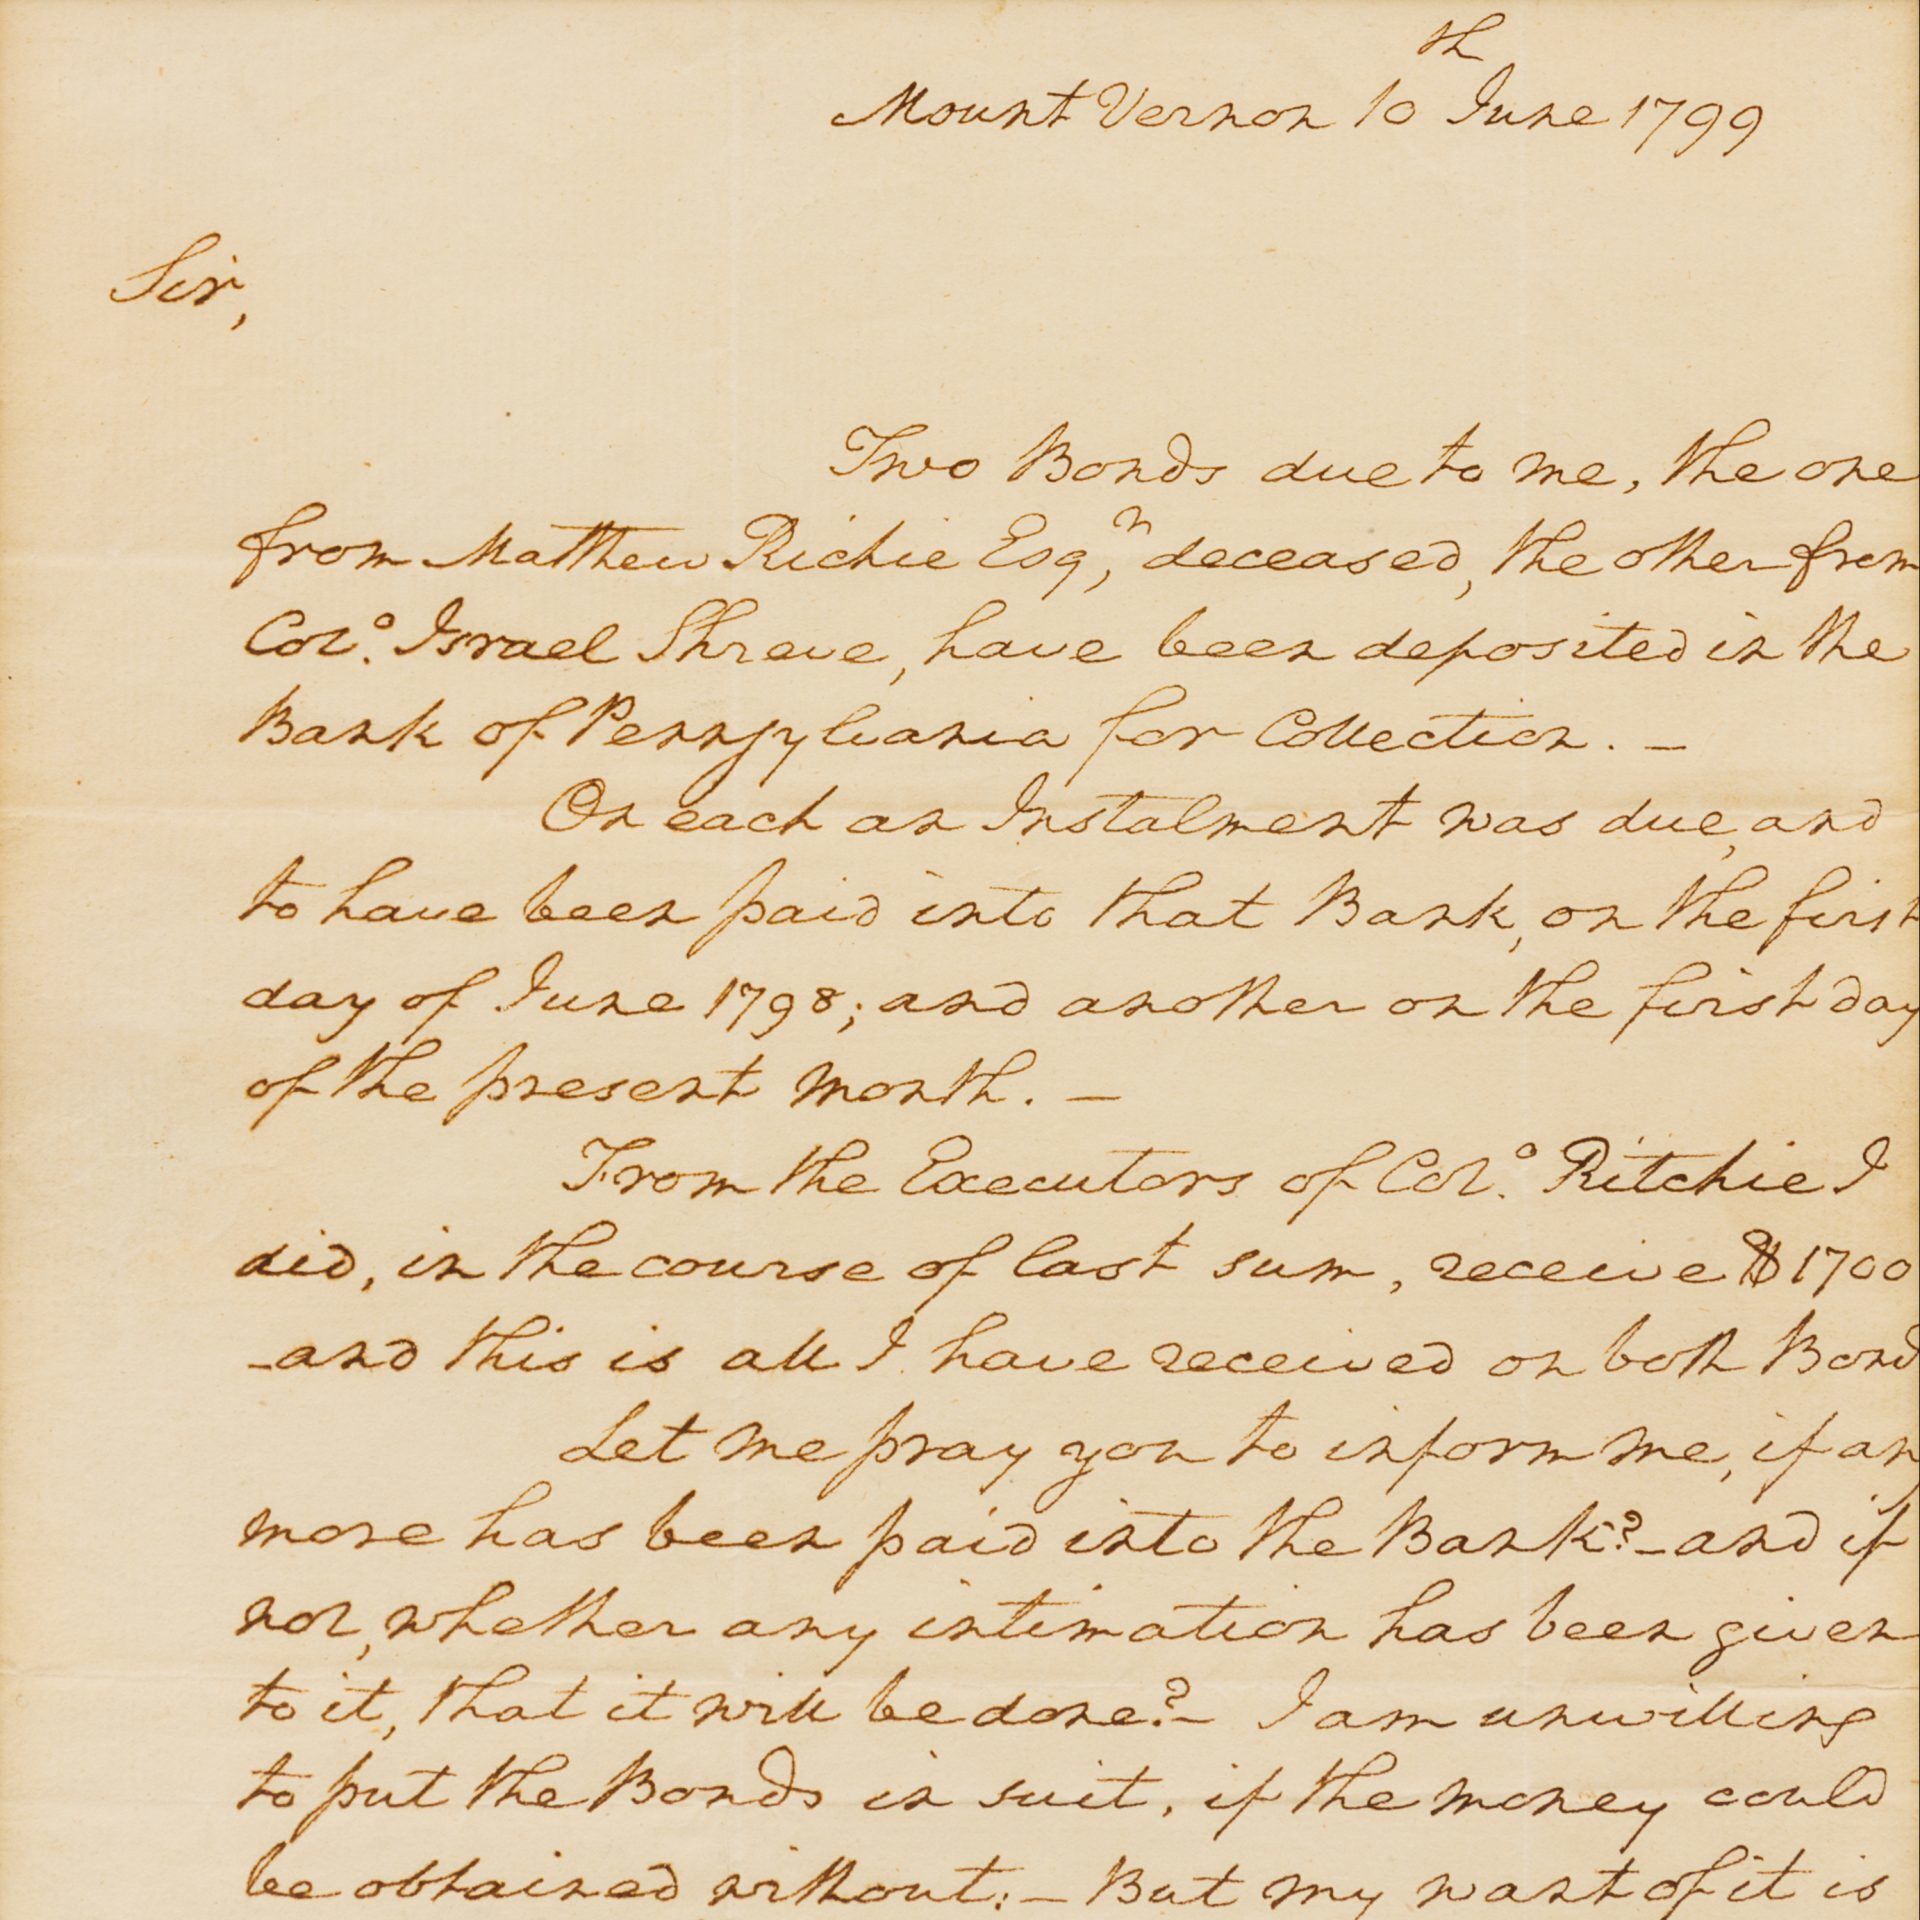 Mount Vernon 10th June 1799
Sir,
Two Bonds due to me, the one
from Matthew Richie Esqr, deceased, the other from
Colo. Israel Shreve, have been deposited in the
Bank of Pennsylvania for Collection. —
On each an Instalment was due, and
to have been paid into that Bank, on the first
day of June 1798; and another on the first day
of the present month. —
From the Executors of Colo. Ritchie I
did, in the course of last sum, receive $1700
—and this is all I have received on both Bond
Let me pray you to inform me, if any
more has been paid into the Bank? — and if
not, whether any intimation has been given
to it, that it will be done? — I am unwilling
to put the Bonds in suit, if the money could
be obtained without: — But my want of it is